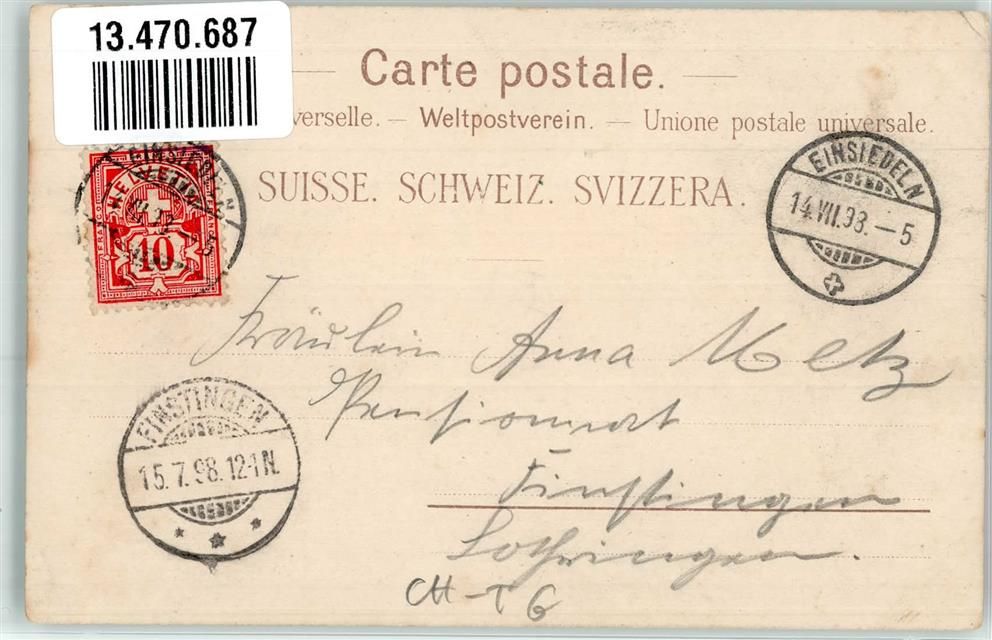 13.470.687
Carte postale.
verselle. — Weltpostverein. — Unione postale universale.
SUISSE. SCHWEIZ. SVIZZERA.
EINSIEDELN
14.VII.98.–5
HELVETIA
10
Fräulein Anna Metz
Pensionat
Finstingen
Lothringen.
FINSTINGEN
15.7.98.12-1N.
CH-TG